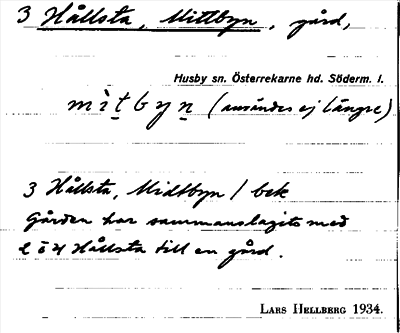 3 Hållsta, Mittbyn, gård,
Husby sn. Österrekarne hd. Söderm. l.
mìt̠byn̠ (användes ej längre)
3 Hållsta, Midtbyn / bek
Gården har sammanslagits med
2 o 4 Hållsta till en gård.
LARS HELLBERG 1934.